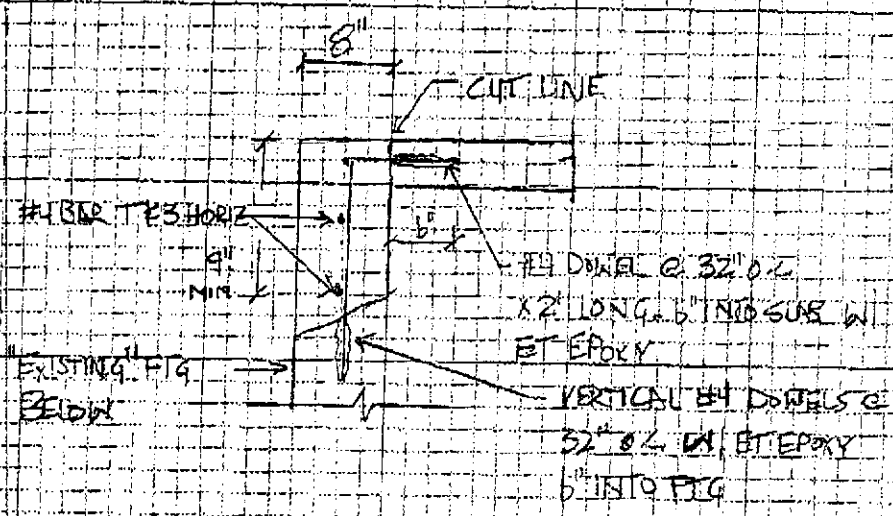 8"
CUT LINE
#4 BAR T & B HORIZ
6"
9"
MIN
#4 DOWEL @ 32" O.C
X 2' LONG. 6" INTO SLAB W/
ET EPOXY
"EXISTING" FTG
BELOW
VERTICAL #4 DOWELS @
32" O.C W/ ET EPOXY
6" INTO FTG